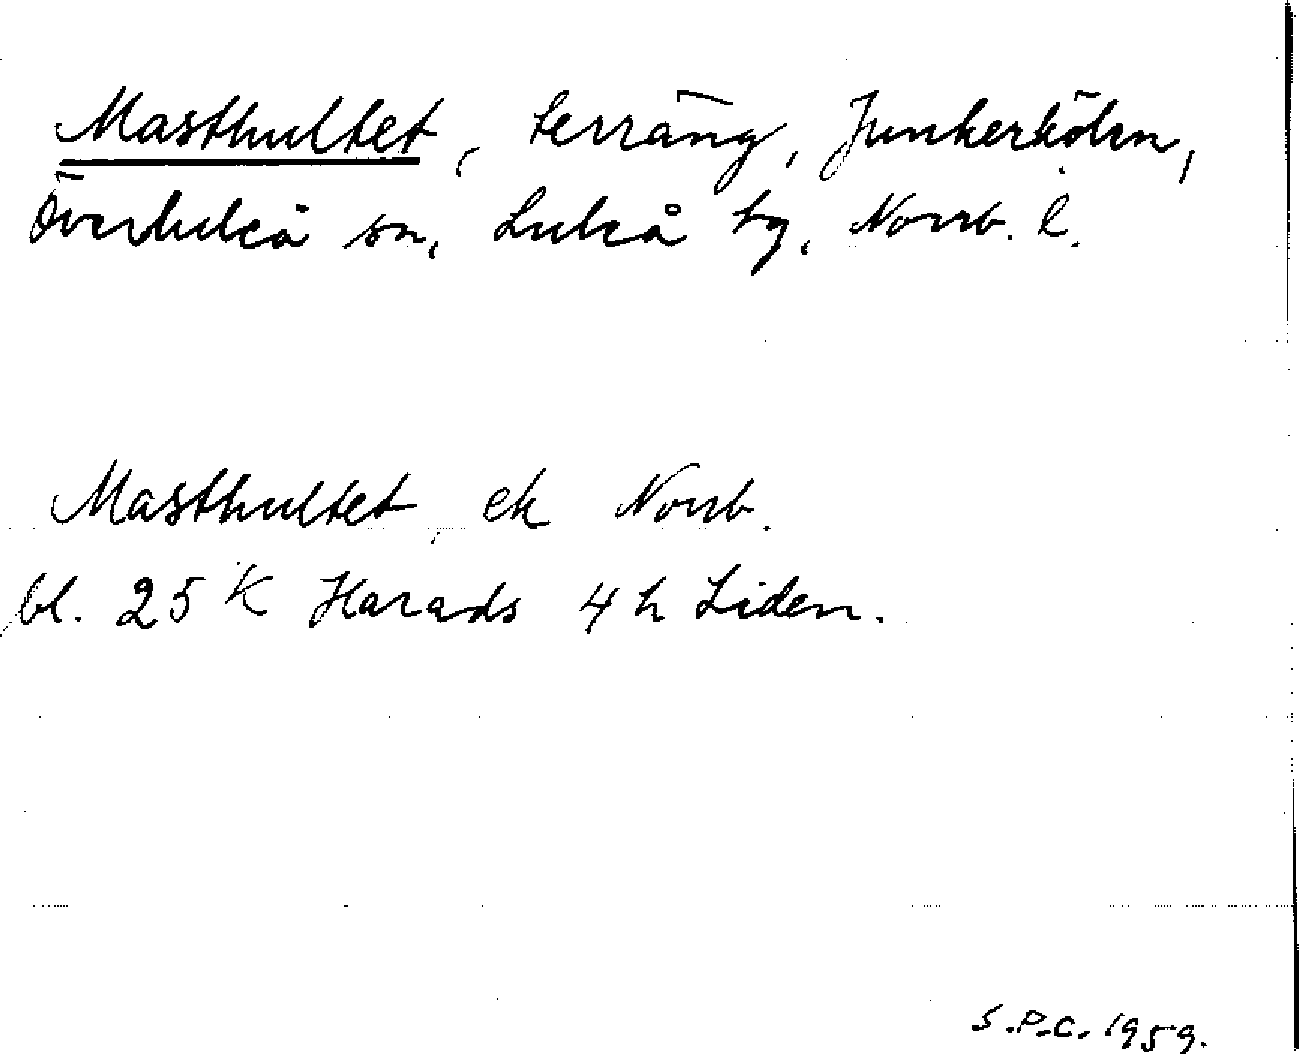 Masthultet, terräng, Junkerhölen,
Överluleå sn, Luleå tg, Norrb. l.
Masthultet ek Norrb.
bl. 25 K Harads 4 h Liden.
S.P.C. 1959.